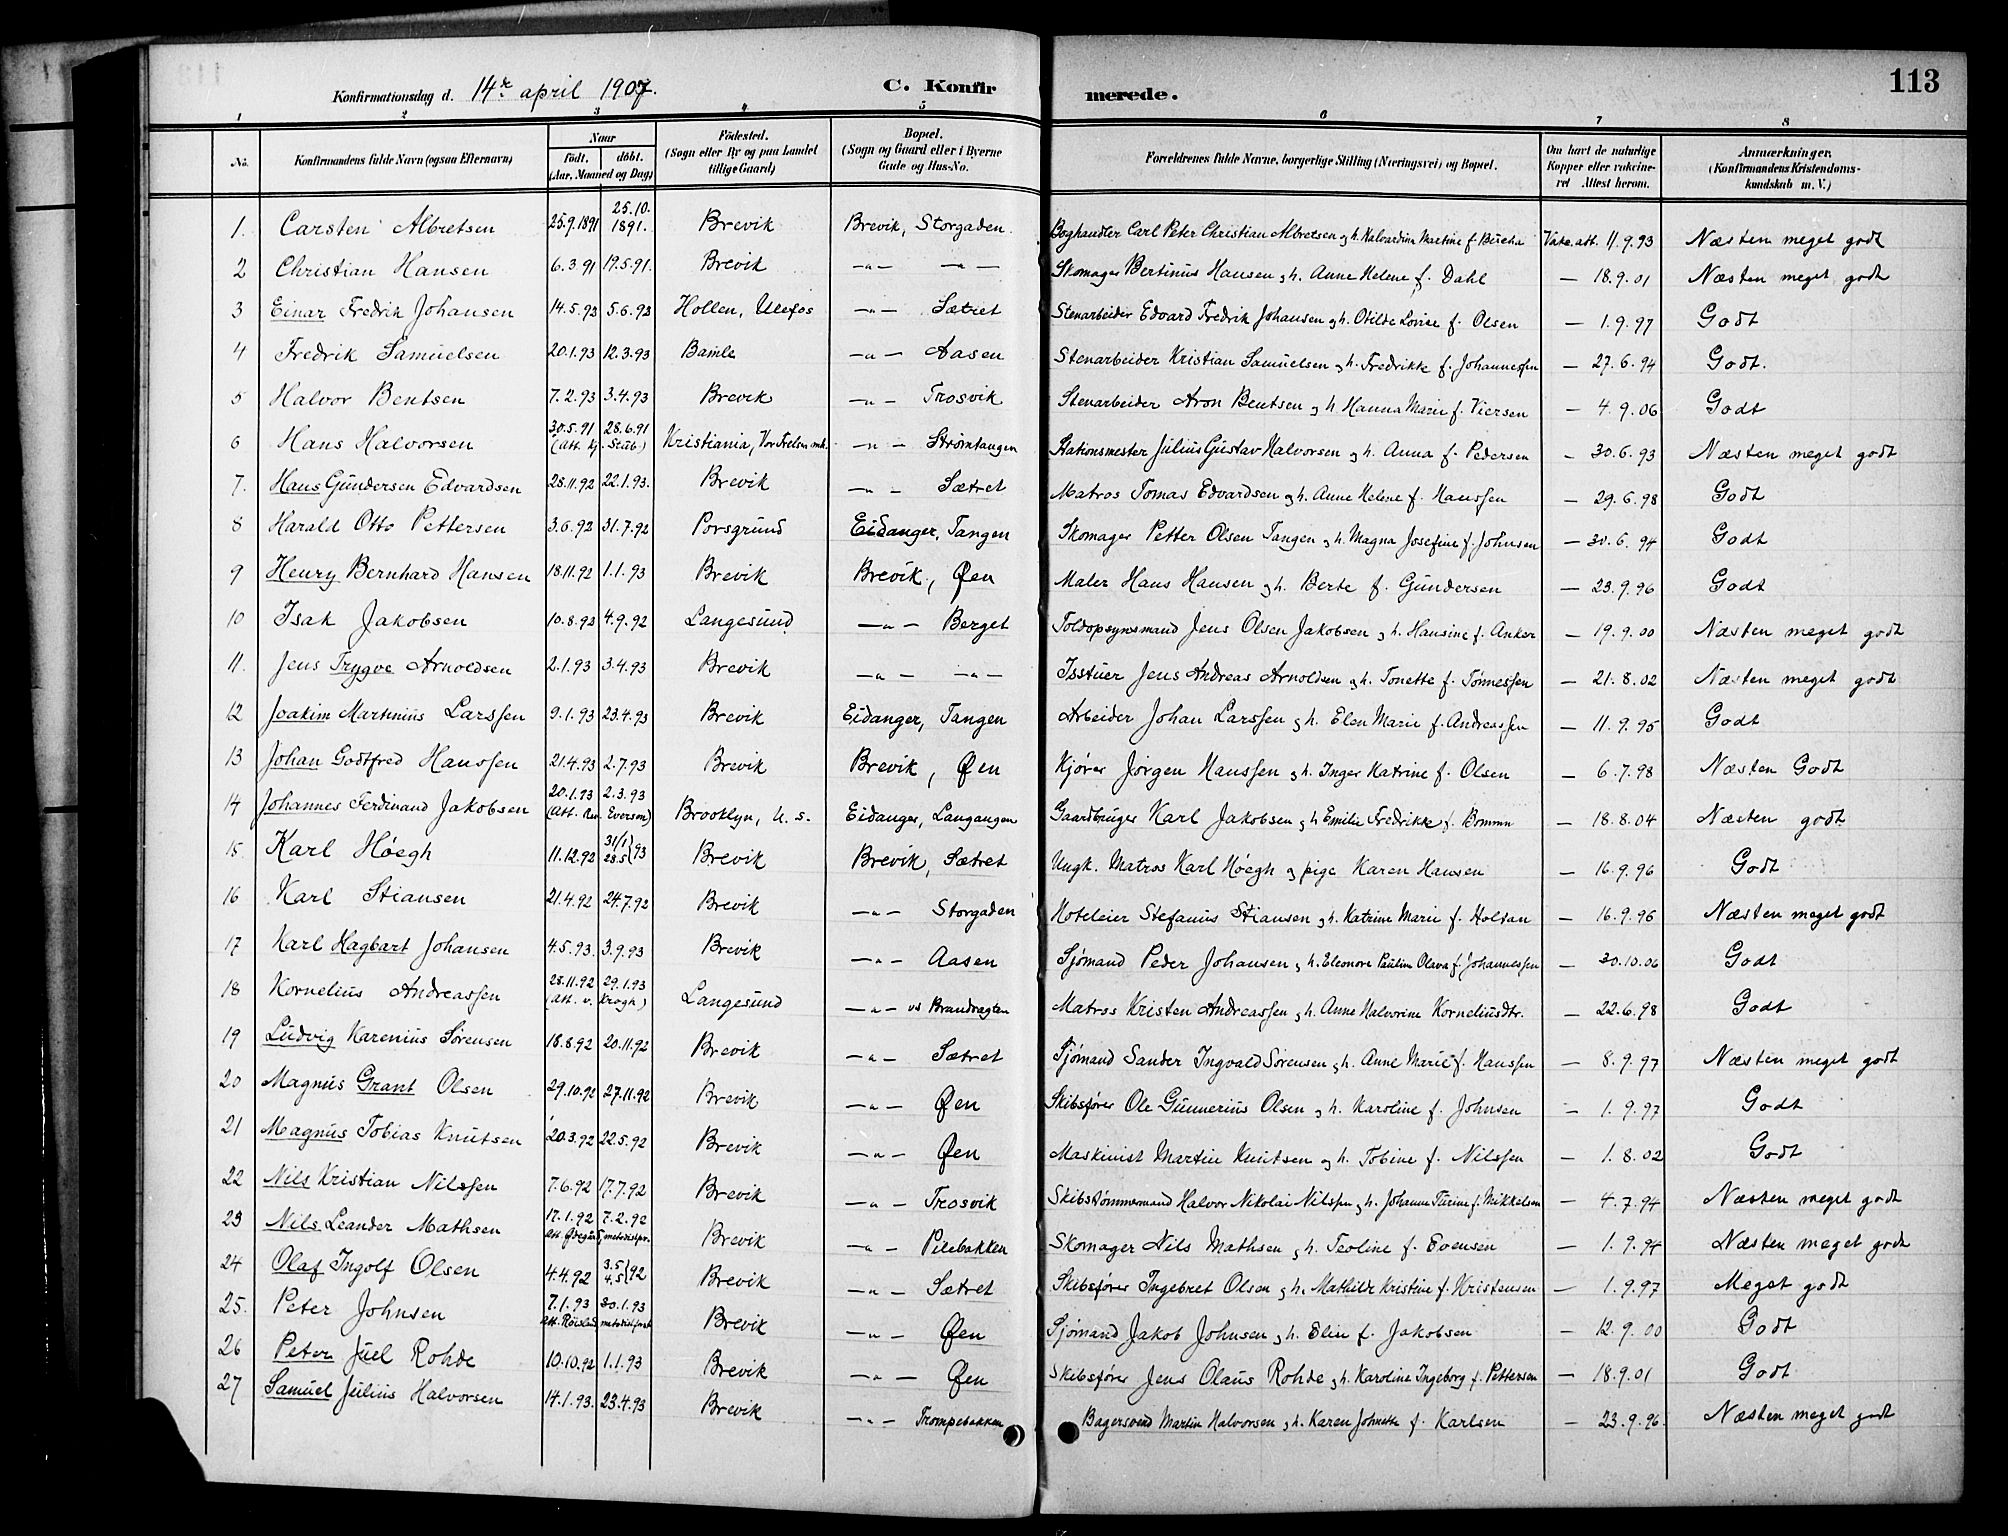 113
Konfirmationsdag d. 14de april 1907. C. Konfirmerede.
1 2 3 4 5 6 7 8
No. Konfirmandens fulde Navn (ogsaa Efternavn) Naar født. døbt. (Aar, Maaned og Dag) Fødested. (Sogn eller By og paa Landet tillige Gaard) Bopæl. (Sogn og Gaard eller i Byerne Gade og Hus-No. Forældrenes fulde Navne, borgerlige Stilling (Næringsvei) og Bopæl. Om havt de naturlige Kopper eller vakcineret Attest herom. Anmærkninger. (Konfirmandens Kristendomskundskab m. V.)
1. Carsten Albretsen 25.9.1891 25.10.1891. Brevik Brevik, Storgaden. Boghandler Carl Peter Christian Albretsen & h. Halvardine Martine f. Vakc. att. 11.9.93 Næsten meget godt
2 Christian Hansen 6.3.91 19.5.91. Brevik —„— —„— Skomager Bertinius Hansen & h. Anne Helene f. Dahl — 18.9.01 Næsten meget godt
3 Einar Fredrik Johansen 14.5.93 5.6.93 Hollen, Ulefos —„— Sætret Stenarbeider Edvard Fredrik Johansen & h. Otilde Lovise f. Olsen — 1.9.97 Godt
4 Fredrik Samuelsen 20.1.93 12.3.93 Bamle —„— Aasen Stenarbeider Kristian Samuelsen & h. Fredrikke f. Johannessen — 27.6.94 Godt.
5 Halvor Bentsen 7.2.93 3.4.93 Brevik —„— Trosvik Stenarbeider Aron Bentsen & h. Hanna Marie f. Viersen — 4.9.06 Godt
6 Hans Halvorsen 30.5.91 28.6.91 (Att. kf. Stub) Kristiania, Vor Frelsers mh. —„— Strømtangen Stationsmester Julius Gustav Halvorsen & h. Anna f. Pedersen — 30.6.93 Næsten meget godt
7. Hans Gundersen Edvardsen 28.11.92 22.1.93. Brevik —„— Sætret Matros Tomas Edvardsen & h. Anne Helene f. Hanssen — 29.6.98 Godt
8 Harald Otto Pettersen 3.6.92 31.7.92 Porsgrund Eidanger, Tangen Skomager Petter Olsen Tangen & h. Magna Josefine f. Johnsen — 30.6.94 Godt
9 Henry Bernhard Hansen 18.11.92 1.1.93 Brevik Brevik, Øen Maler Hans Hansen & h. Berte f. Gundersen — 23.9.96 Godt
10 Isak Jakobsen 10.8.92 4.9.92 Langesund —„— Berget Toldopsynsmand Jens Olsen Jakobsen & h. Hansine f. Anker — 19.9.00 Næsten meget godt
11. Jens Trygve Arnoldsen 2.1.93 3.4.93 Brevik —„— —„— Isstuer Jens Andreas Arnoldsen & h. Tonette f. Tønnessen — 21.8.02 Næsten meget godt
12 Joakim Martinius Larssen 9.1.93 23.4.93 Brevik Eidanger, Tangen Arbeider Johan Larssen & h. Elen Marie f. Andreassen — 11.9.95 Godt
13 Johan Godtfred Hanssen 21.4.93 2.7.93 Brevik Brevik, Øen Kjører Jørgen Hanssen & h. Inger Katrine f. Olsen — 6.7.98 Næsten Godt
14 Johannes Ferdinand Jakobsen 20.1.93 2.3.93 (Att. Rev. Everson) Brooklyn, U.S. Eidanger, Langangen Gaardbruger Karl Jakobsen & h. Emilie Fredrikke f. — 18.8.04 Næsten godt
15. Karl Høegh 11.12.92 31/1 28.5 } 93 Brevik Brevik, Sætret Ungk. Matros Karl Høegh og pige Karen Hansen — 16.9.96 Godt
16 Karl Stiansen 21.4.92 24.7.92 Brevik —„— Storgaden Hoteleier Stefanus Stiansen & h. Katrine Marie f. Holtan — 16.9.96 Næsten meget godt
17 Karl Hagbart Johansen 4.5.93. 3.9.93 Brevik —„— Aasen Sjømand Peder Johansen & h. Eleonore Pauline Olava f. Johannessen — 30.10.06 Godt
18 Kornelius Andreassen 28.11.92 29.1.93 (Att. v. Krogh) Langesund —„— vs Brandvagten Matros Kristen Andreassen & h. Anne Halvorine Korneliusdtr. — 22.6.98 Godt
19 Ludvig Karenius Sørensen 18.8.92 20.11.92 Brevik —„— Sætret Sjømand Sander Ingvald Sørensen & h. Anne Marie f. Hanssen — 8.9.97 Næsten meget godt
20 Magnus Grant Olsen 29.10.92 27.11.92 Brevik —„— Øen Skibsfører Ole Gunnerius Olsen & h. Karoline f. Johnsen — 1.9.97 Godt
21 Magnus Tobias Knutsen 20.3.92 22.5.92 Brevik —„— Øen Maskinist Martin Knutsen & h. Tobine f. Nilssen — 1.8.02 Godt
22 Nils Kristian Nilssen 7.6.92 17.7.92 Brevik —„— Trosvik Skibstømmermand Halvor Nikolai Nilssen & h. Johanne Turine f. Mikkelsen — 4.7.94 Næsten meget godt
23 Nils Leander Mathsen 17.1.92 7.2.92 Att. Ødegård, metodistpr. Brevik —„— Pilebakken Skomager Nils Mathsen & h. Teoline f. Evensen — 1.9.94 Næsten meget godt
24 Olaf Ingolf Olsen 4.4.92 3.5 4.5 } 92 Brevik —„— Sætret Skibsfører Ingebret Olsen & h. Mathilde Kristine f. Kristensen — 1.9.97 Meget godt
25. Peter Johnsen 7.1.93 30.1.93 Att. Røislad Brevik —„— Øen Sjømand Jakob Johnsen & h. Elin f. Jakobsen — 12.9.00 Godt
26 Peter Juel Rohde 10.10.92 1.1.93 Brevik —„— Øen Skibsfører Jens Olaus Rohde & h. Karoline Ingeborg f. Pettersen — 18.9.01 Godt
27 Samuel Julius Halvorsen 14.1.93. 23.4.93 Brevik —„— Trompebakken Bagersvend Martin Halvorsen & h. Karen Johnette f. Karlsen — 23.9.96. Næsten meget godt